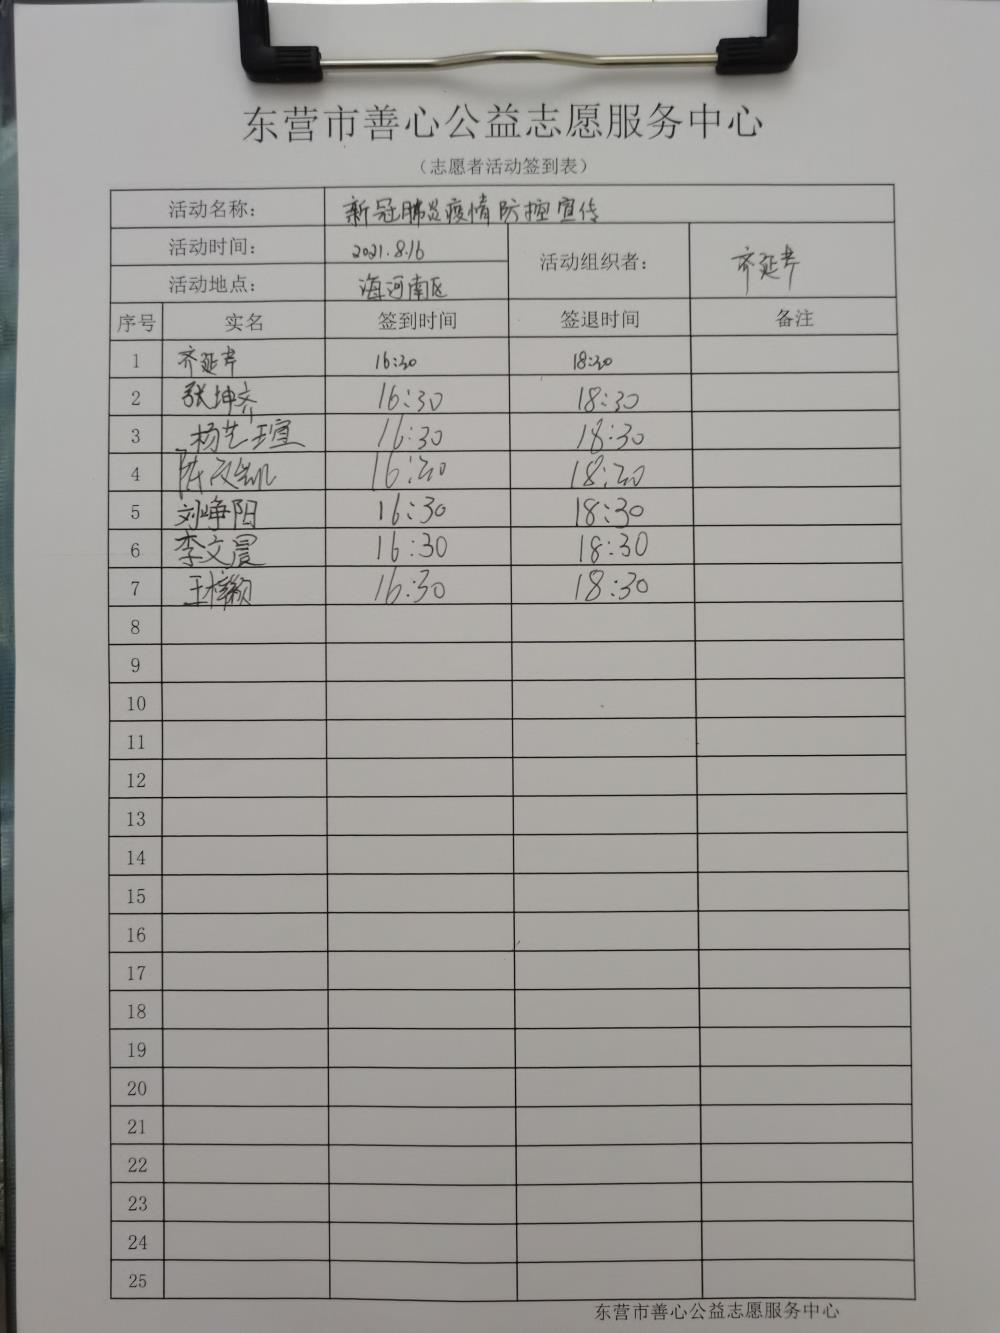 东营市善心公益志愿服务中心
（志愿者活动签到表）
活动名称： 新冠肺炎疫情防控宣传
活动时间： 2021.8.16 活动组织者：
活动地点： 海河南区
序号 实名 签到时间 签退时间 备注
1 16:30 18:30
2 张坤齐 16:30 18:30
3 杨艺瑄 16:30 18:30
4 16:30 18:30
5 刘峥阳 16:30 18:30
6 李文晨 16:30 18:30
7 王梓颖 16:30 18:30
8
9
10
11
12
13
14
15
16
17
18
19
20
21
22
23
24
25
东营市善心公益志愿服务中心